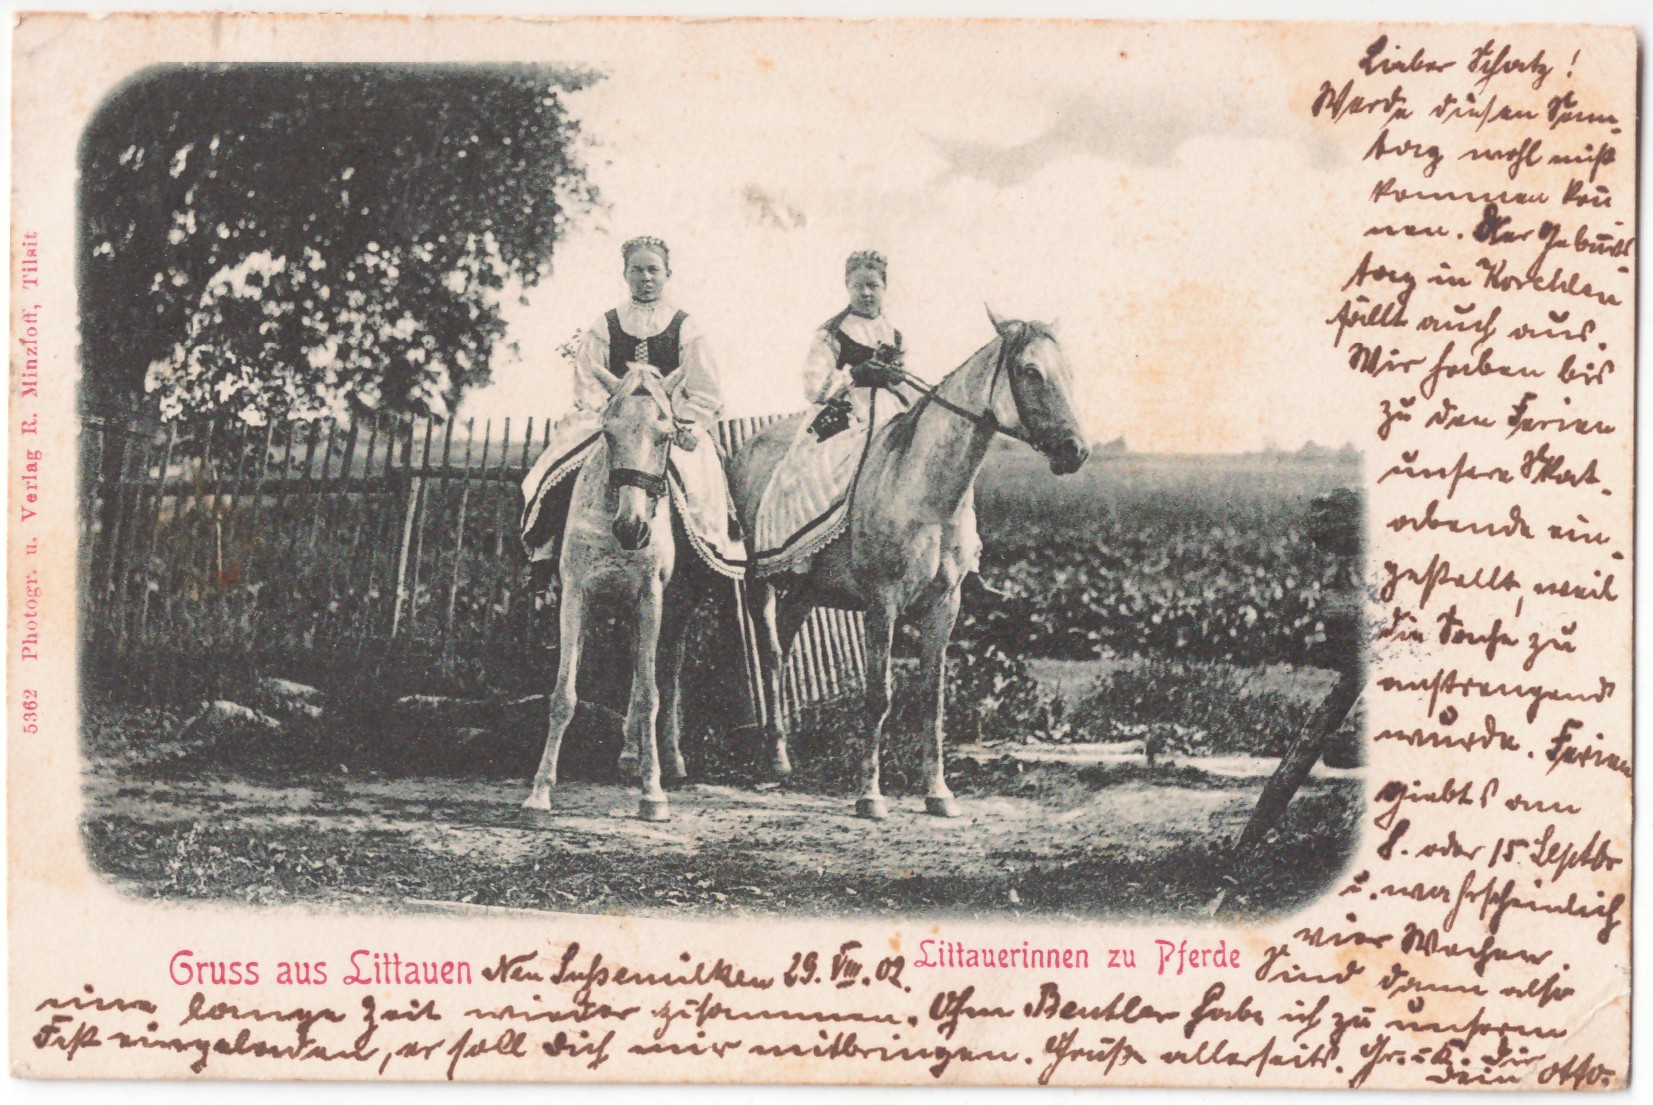 5362 Photogr. u. Verlag R. Minzloff, Tilsit
Gruss aus Littauen
Littauerinnen zu Pferde
Neu 29. VIII. 02.
Lieber Schatz!
Werde diesen Sonn-
tag wohl nicht
kommen kön
nen. Der Geburts-
tag in Korehlen
fällt auch aus.
Wir haben bis
zu den Ferien
unsere Skat-
abende ein-
gestellt, weil
die Sache zu
anstrengend
wurde. Ferien
giebts am
8. oder 15. Septbr
u. wahrscheinlich
vier Wochen.
Sind dann also
eine lange Zeit wieder zusammen. Ohm Beutler habe ich zu unserm
Fest eingeladen, er soll Dich mir mitbringen. Grüße allerseits. Gr. u. K. Dir
Dein Otto.